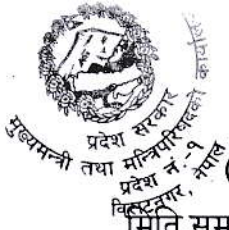 प्रदेश सरकार
मुख्यमन्त्री तथा मन्त्रिपरिषदको
प्रदेश नं.-१
विराटनगर, नेपाल
मिति सम